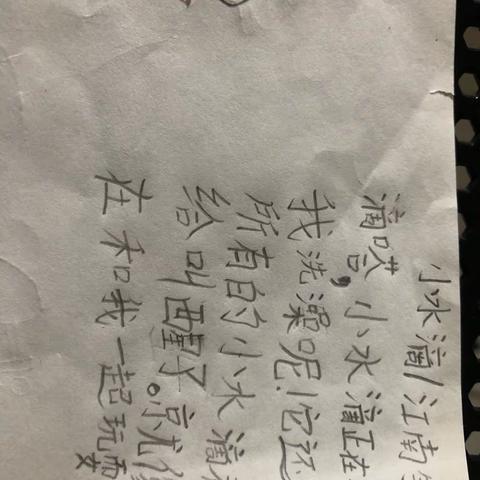 小水滴/江南
滴嗒,小水滴正在
我洗澡呢!它还
所有的小水滴
给叫醒了。就
在和我一起玩耍